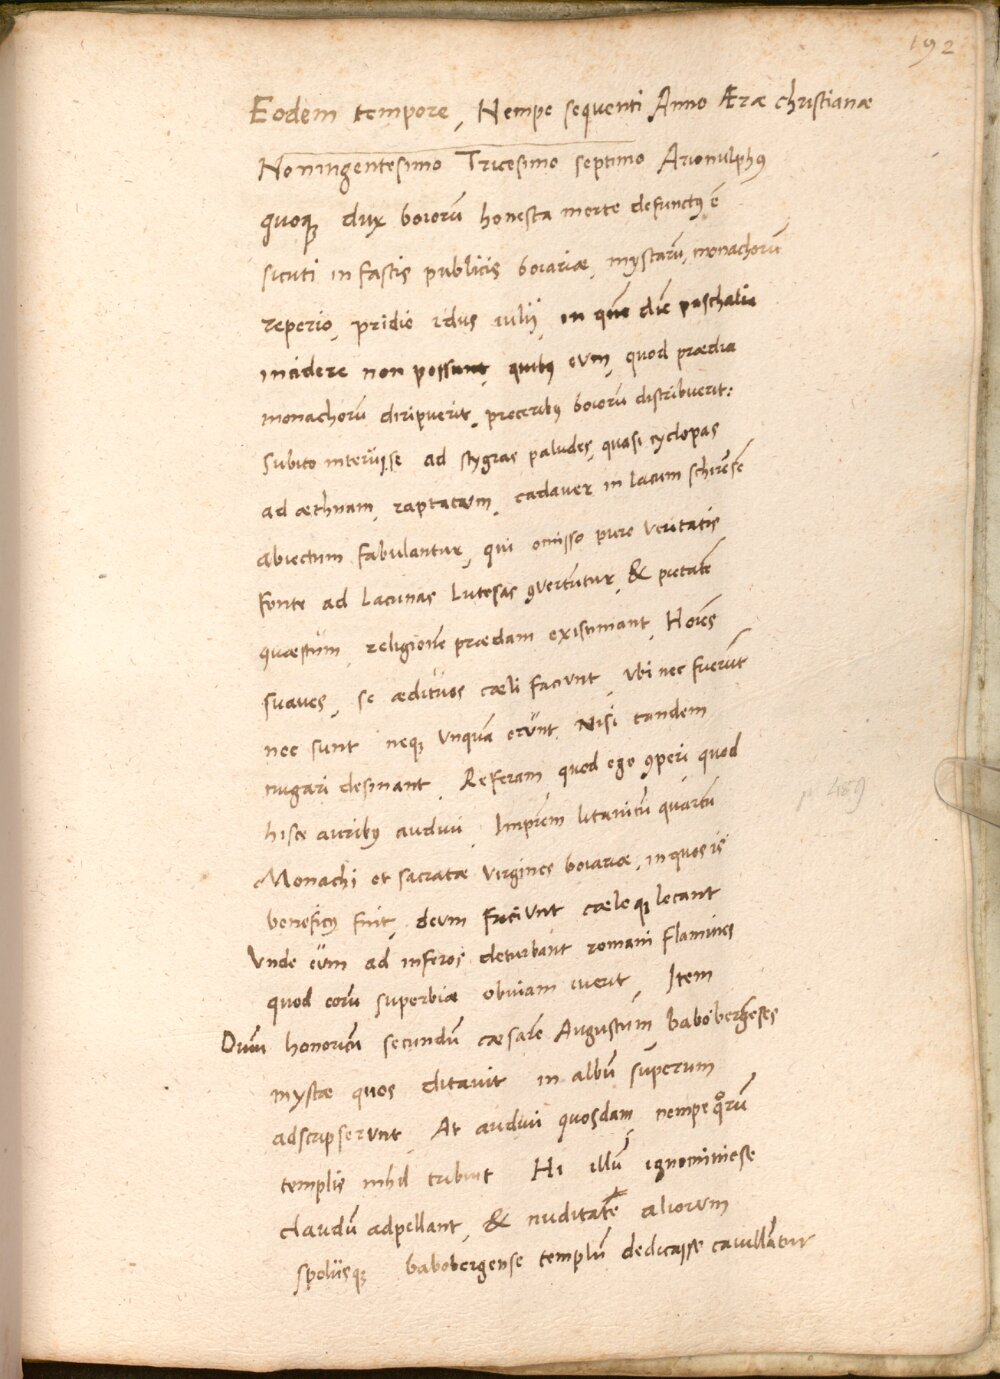 192
Eodem tempore, Nempe sequenti Anno Æræ christianæ
Noningentesimo Tricesimo septimo Arionulphꝰ
quoqꝫ dux boiorū honesta morte defunctꝰ ē
sicuti in fastis publicis boiariæ, mystarū, monachorū
reperio, pridie idus iulij, in quē diē paschalia
incidere non possunt, quibꝰ eum, quod prædia
monachorū diripuerit, proceribꝰ boiorū distribuerit:
Subito interijsse ad stygias paludes, quasi cyclopas
ad æthnam, raptatum, cadaver in lacum schirēsē
abiectum fabulantur, qui omisso puro veritatis
fonte ad lacunas lutosas ꝯvertūtur, & pietatē
quæstūm, religionē prædam existimant, Hoīes
suaves, se ædituos cæli faciunt, ubi nec fuerūt
nec sunt neqꝫ unquā erūnt, nisi tandem
nugari desinant. Referam, quod ego ꝯperi quod
hisce auribꝰ audivi. Imprēm
Monachi et sacratæ virgines boiariæ, in quos is
beneficꝰ fuit, deum faciunt cæloqꝫ locant
Vnde eūm ad inferos deturbant romani flamines
quod eorū superbiæ obviam iverit, Item
Divum honoricū secundū cæsarē Augustūm babobergēses
mystæ quos ditavit in albū sūperum
adscripserunt, At audivi quosdam, nempe qͦrū
templis nihil tribuit Hi illū ignominiose
claudū adpellant, & nuditatē aliorum
spolijsqꝫ babobergense templū dedicasse cavillātur
p 489